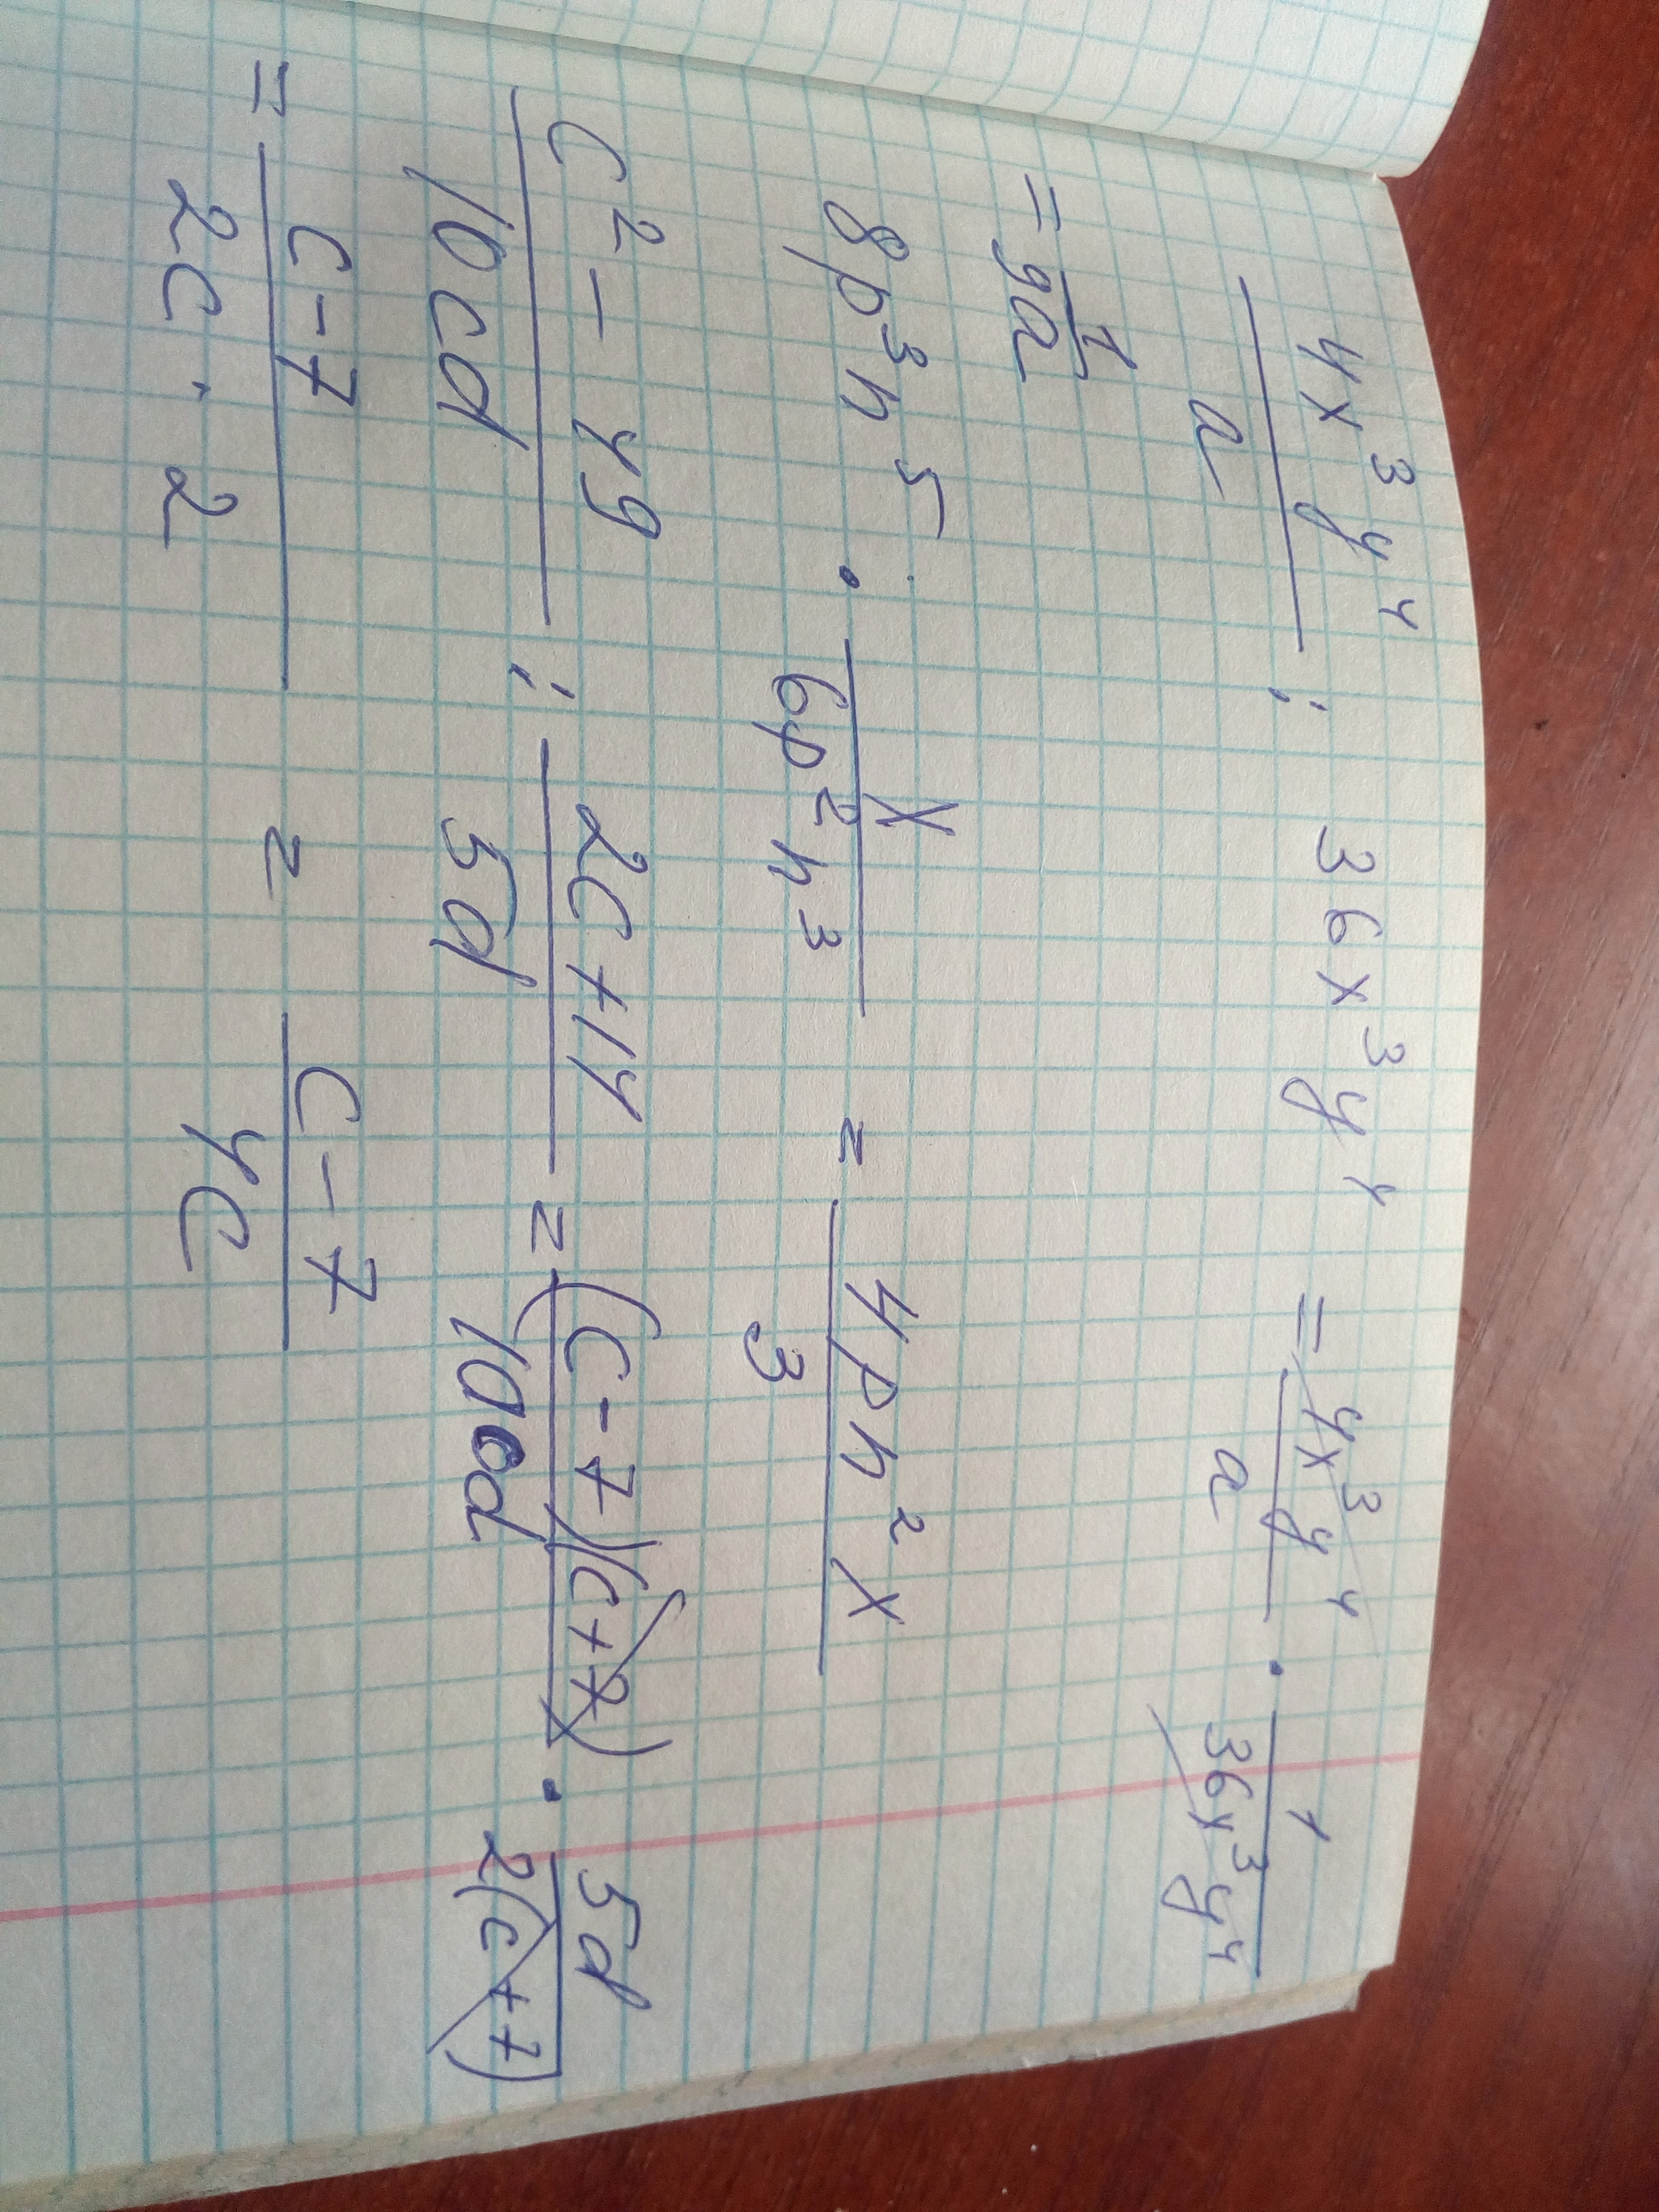 4x³y⁴/a : 36x³y⁴ = 4x³y⁴/a · 1/36x³y⁴
= 1/9a
8p³n⁵ · x/6p²n³ = 4pn²x/3
c² - 49/10cd : 2c+14/5d = (c-7)(c+7)/10cd · 5d/2(c+7)
= c-7/2c·2 = c-7/4c